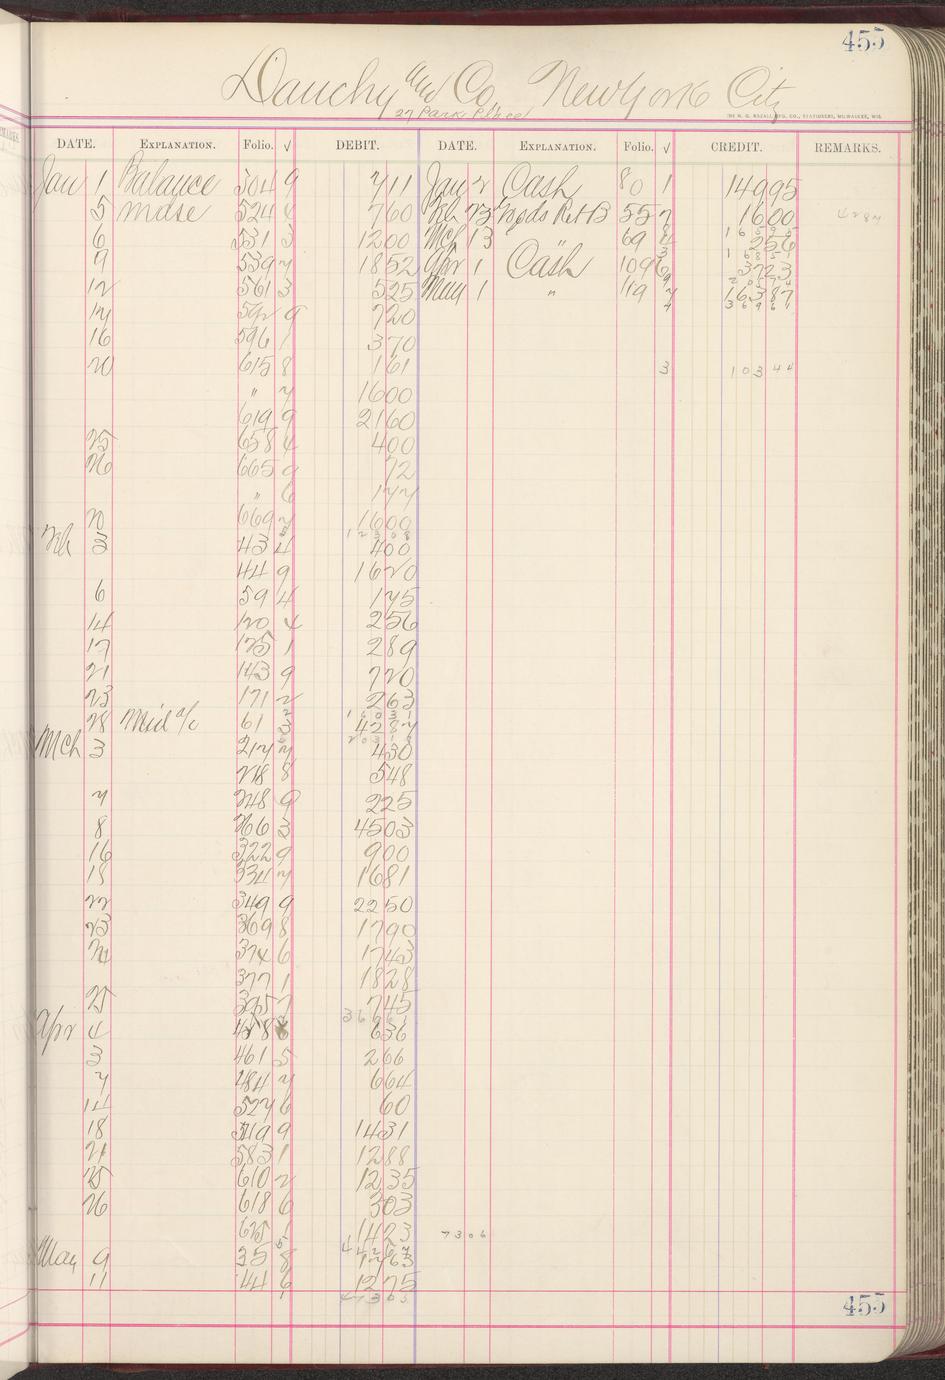 455
Dauchy and Co, New York City
27 Park Place
DATE. EXPLANATION. Folio. √ DEBIT. DATE. EXPLANATION. Folio. √ CREDIT. REMARKS.
Jan 1 Balance 504 9 711 Jan 2 Cash 80 1 14995
5 Mdse 524 4 760 Feb 55 1600 4287
6 531 3 1200 Mch 13 " 69 256
9 539 7 1852 Apr 1 Cash 109 6 3723
12 561 3 525 May 1 " 119 7 16387
14 592 9 720
16 596 1 370
20 615 8 161 3 10344
" 7 1600
619 9 2160
25 658 4 400
26 665 9 72
" 6 177
669 7 1600
Feb 3 43 4 400
44 9 1620
6 59 4 175
14 120 4 256
17 125 1 289
21 143 9 720
23 171 2 263
28 61 3 4287
Mch 3 217 7 430
228 8 548
7 248 9 225
8 266 3 4503
16 322 9 900
18 334 7 1681
22 349 9 2250
23 369 8 1790
24 374 6 1743
377 1 1828
25 745
Apr 4 458 636
3 461 5 266
7 484 7 664
14 527 6 60
18 549 9 1431
21 583 1 1288
25 610 2 1235
26 618 6 303
625 1 1423 7306
May 9 35 8 1763
11 44 6 1275
47305
455